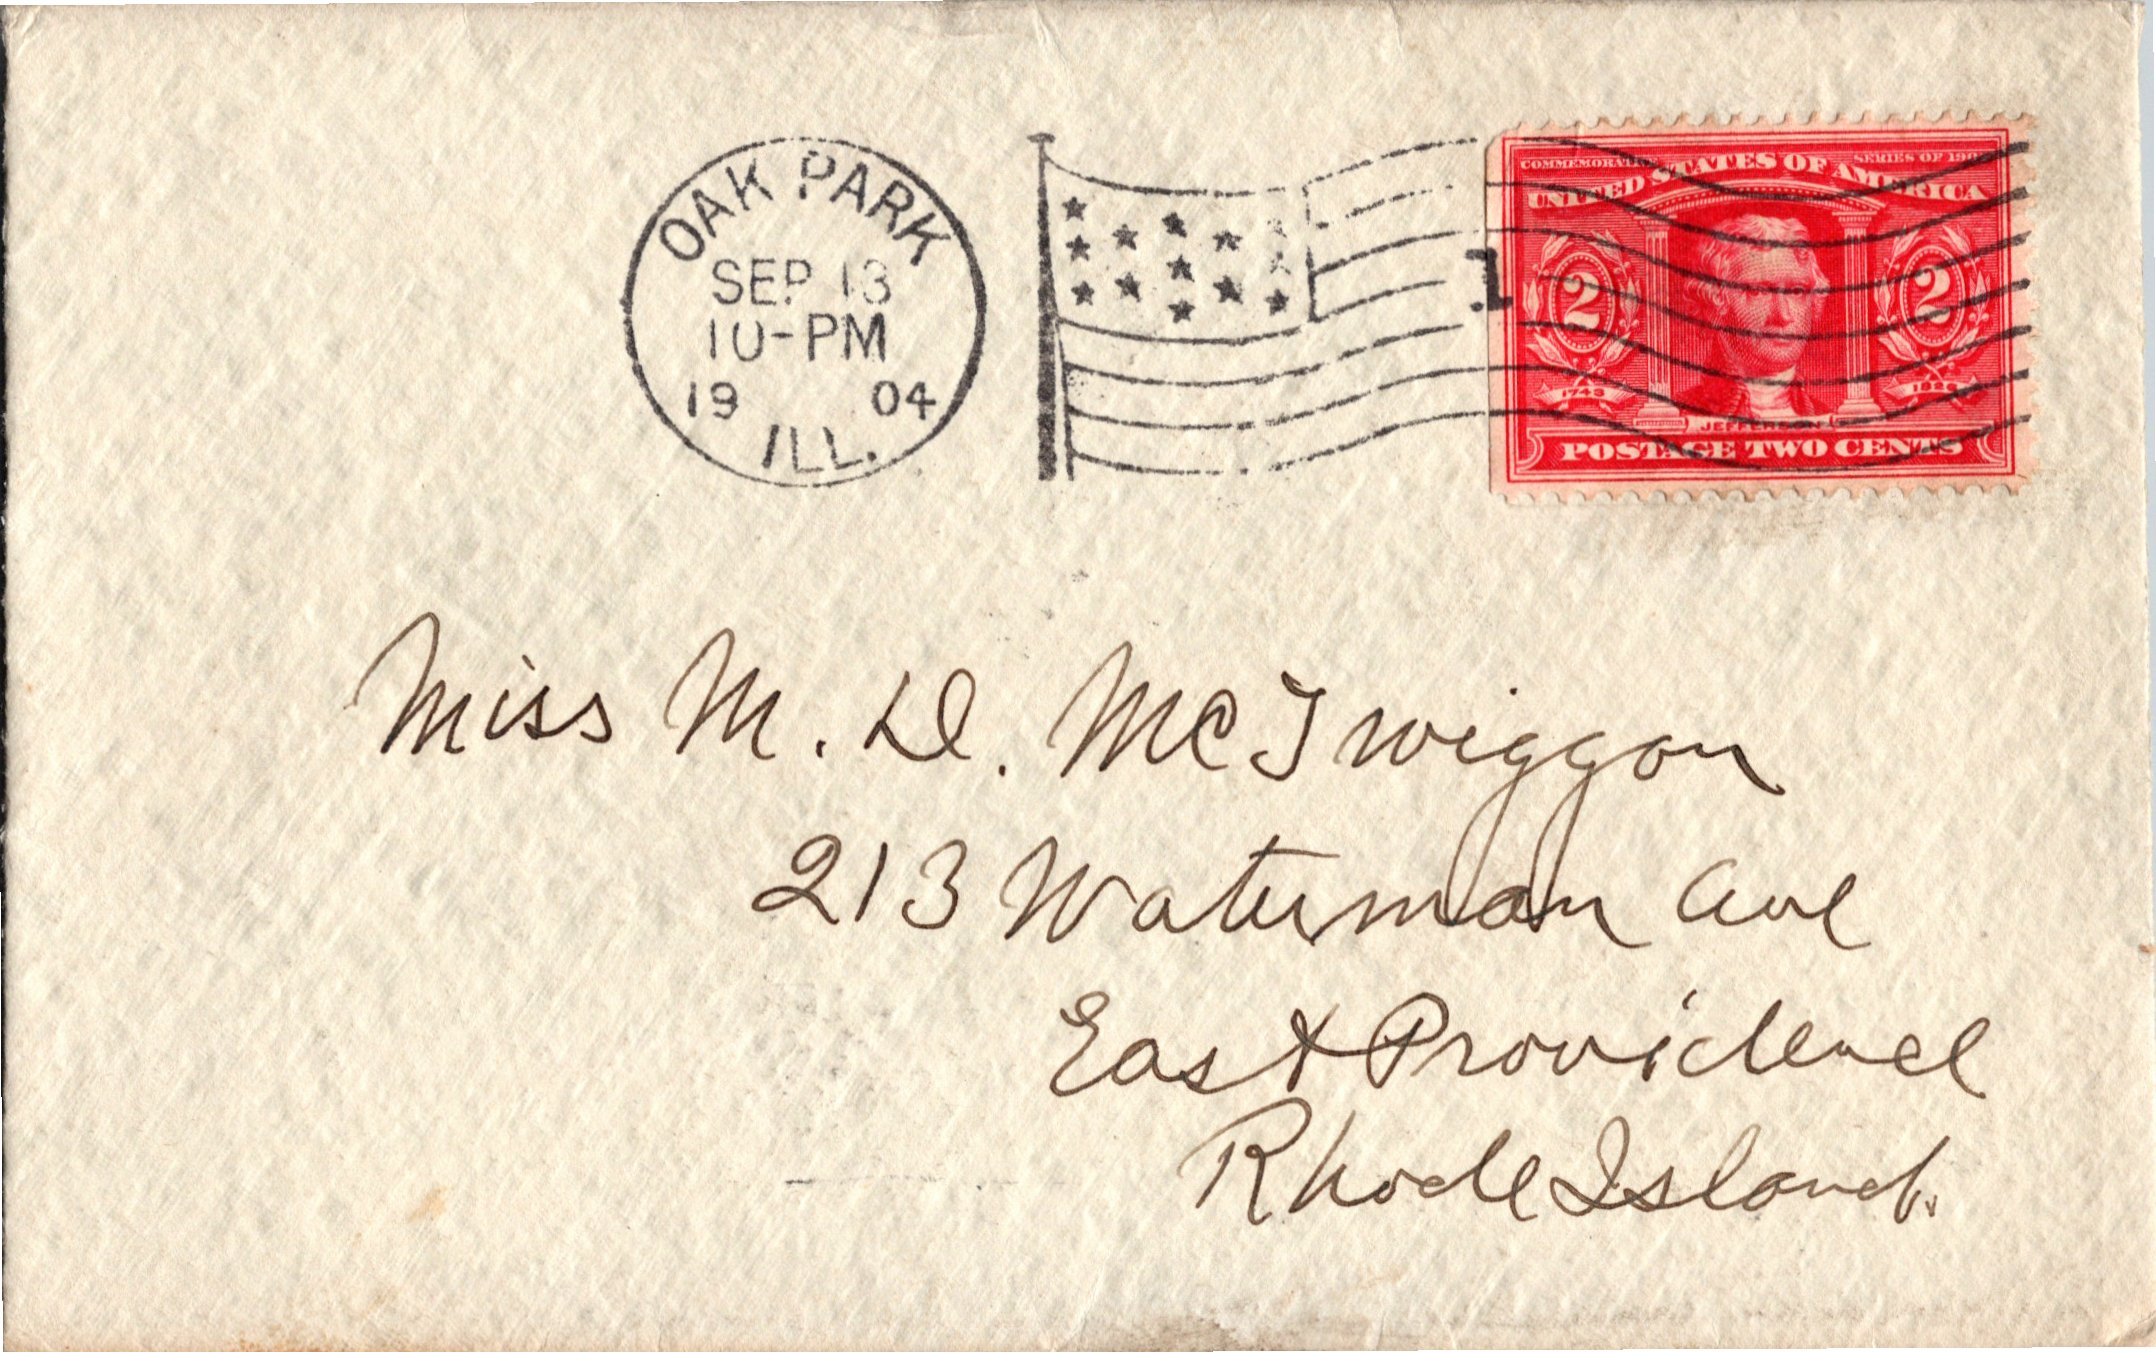 OAK PARK
SEP 13
10-PM
19 04
ILL.
1
COMMEMORATIVE SERIES OF 1904
UNITED STATES OF AMERICA
2 2
1743 1826
JEFFERSON
POSTAGE TWO CENTS
Miss M. D. McTwiggan
213 Waterman Ave
East Providence
Rhode Island.